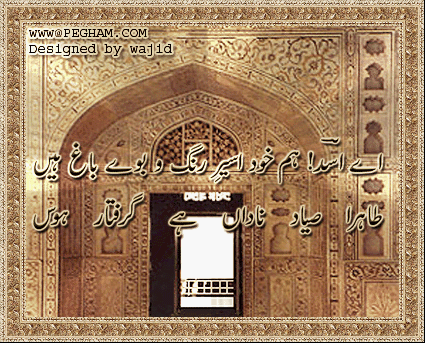 www@PEGHAM.COM
Designed by wajid
اے اسدؔ! ہم خود اسیرِ رنگ و بوے باغ ہیں
ظاہرا صیاد ناداں ہے گرفتار ہوس